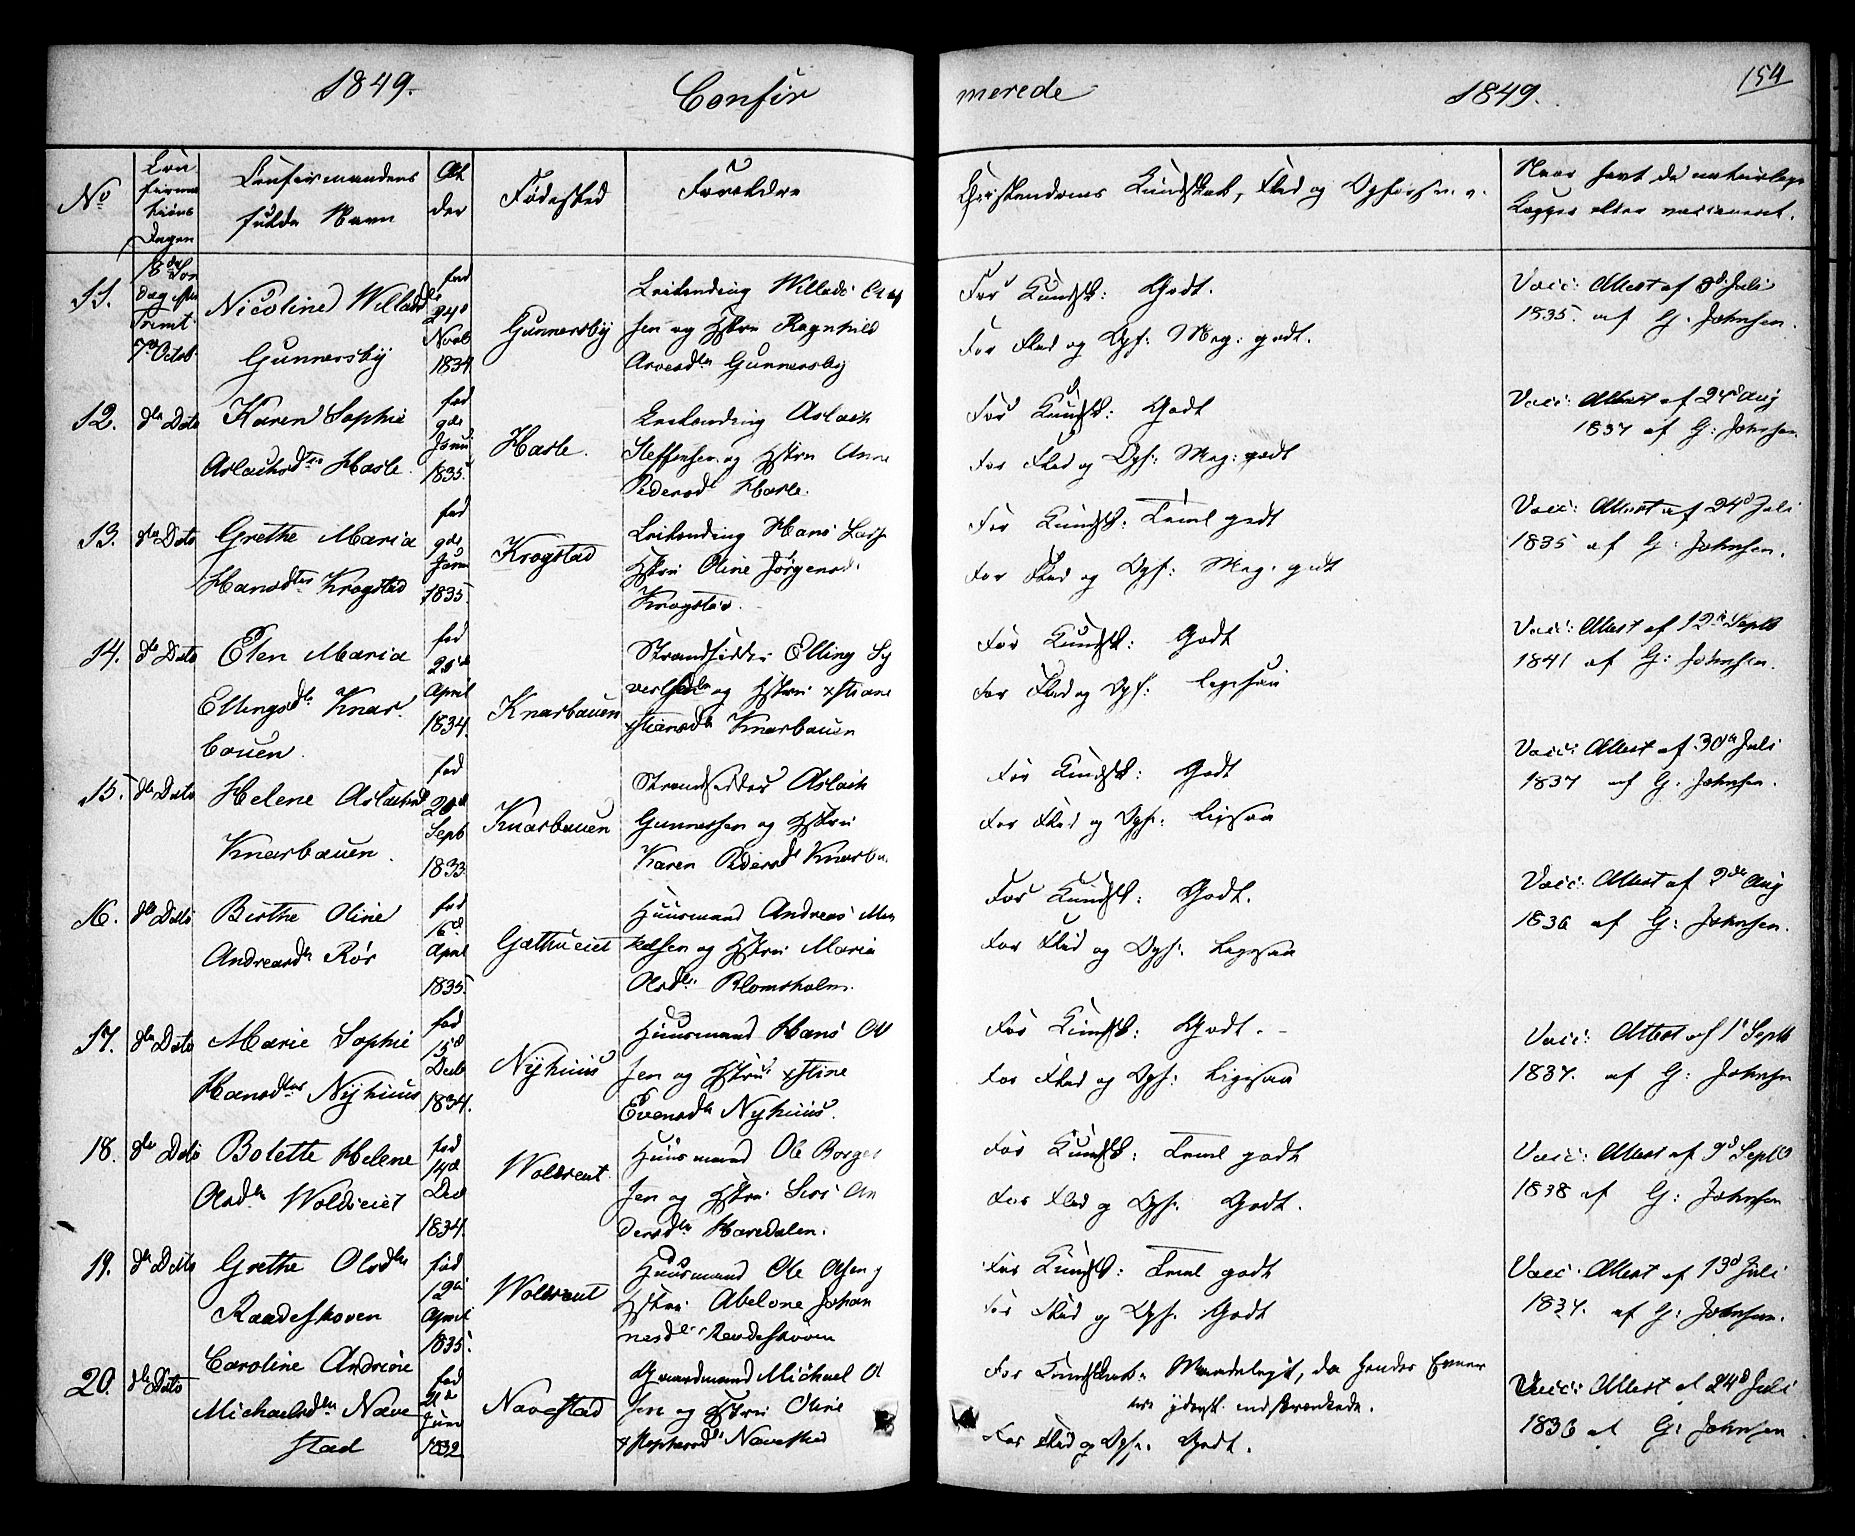 1849. Confir merede 1849. 154
No Con firma tions Dagen Confirmandens fulde Navn Al der Fødested Forældre Christendoms Kundskab, Flid og Opførsel Naar havt de naturlige Kopper eller vaccineret.
11. 18de Søn dag efter Trinit 7de Octob. Nicoline Willads
Gunnersby
fød 24de Novb 1834
Gunnersby
Leilending Willads
sen og Hstru Ragnhild
Arvesdtr Gunnersby
For Kundsk: Godt.
For Flid og Opf: Meg: godt.
Vacc: Attest af 3d Juli
1835 af G. Johnsen.
12. dto Dato Karen Sophie
Aslachsdtr Hasle.
fød 9de Janu 1835.
Hasle.
Leilending Aslach
Steffensen og Hstru Anne
Pedersdt Hasle.
For Kundsk: Godt
For Flid og Opf: Meg: godt
Vacc: Attest af 24de Aug
1837 af G: Johnsen.
13. dto Dato Grethe Maria
Hansdtr Krogstad
fød 9de Janu 1835.
Krogstad
Leilending Hans Lars
Hstru Oline Jørgensd
Krogstad.
For Kundsk: Teml godt
For Flid og Opf: Meg. godt
Vacc: Attest af 24d Juli
1835 af G: Johnsen.
14. do Dato Elen Maria
Ellingsdtr Knar
bauen.
fød April 1834.
Knarbauen
Strandsidder Elling Sy
vertsen og Hstru xstiane
xstiansdtr Knarbauen
For Kundsk: Godt
For Flid og Opf: Ligesaa
Vacc: Attest af 12d Septb
1841 af G: Johnsen.
15. do Dato Helene Aslachsd
Knarbauen.
fød 20d Septb 1833
Knarbauen
Strandsidder Aslach
Gunnersen og Hstru
Karen Pedersdt Knarba
For Kundsk: Godt
For Flid og Opf: Ligesaa
Vacc: Attest af 30te Juli
1837 af G. Johnsen.
16. do Dato Birthe Oline
Andreasdtr Rør
fød 16d April 1835.
Gathueiet
Huusmand Andreas
og Hstru Maria
Olsdtr Blomsholm.
For Kundsk: Godt.
For Flid og Opf: Ligesaa
Vacc: Attest af 2de Aug
1836 af G: Johnsen.
17. do Dato Marie Sophie
Hansdtr Nyhuus
fød 15d Decb 1834.
Nyhuus
Huusmand Hans Ol
sen og Hstru xstine
Evensdtr Nyhuus.
For Kundsk: Godt.
For Flid og Opf: Ligesaa
Vacc: Attest af 1d Septb
1837. af G: Johnsen
18. do Dato Bolette Helene
Olsdtr Woldveiet
fød 14d Dec 1834.
Huusmand Ole Borger
sen og Hstru Siri An
dersdtr Haredalen.
For Kundsk: Teml godt
For Flid og Opf. Godt.
Vacc: Attest af 9d Septb
1838 af G: Johnsen
19. do Dato Grethe Olsdtr
Raadeskoven
fød 12d April 1835.
Huusmand Ole Olsen
Hstru Abelone Johan
nesdtr Raadeskoven
For Kundsk: Teml godt
For Flid og Opf. Godt
Vacc. Attest af 13d Juli
1837. af G: Johnsen.
20. do Dato Caroline Andrine
Michaelsdtr Nave
stad
fød Juni 1832
Navestad
Gaardmand Michael Ol
sen og Hstru Oline
xstophersdt Navestad
For Kundskab: Maadeligt, da hendes Evner
ere yderst indskrænkede.
For Flid og Opf. Godt.
Vacc: Attest af 24d Juli
1836 af G: Johnsen